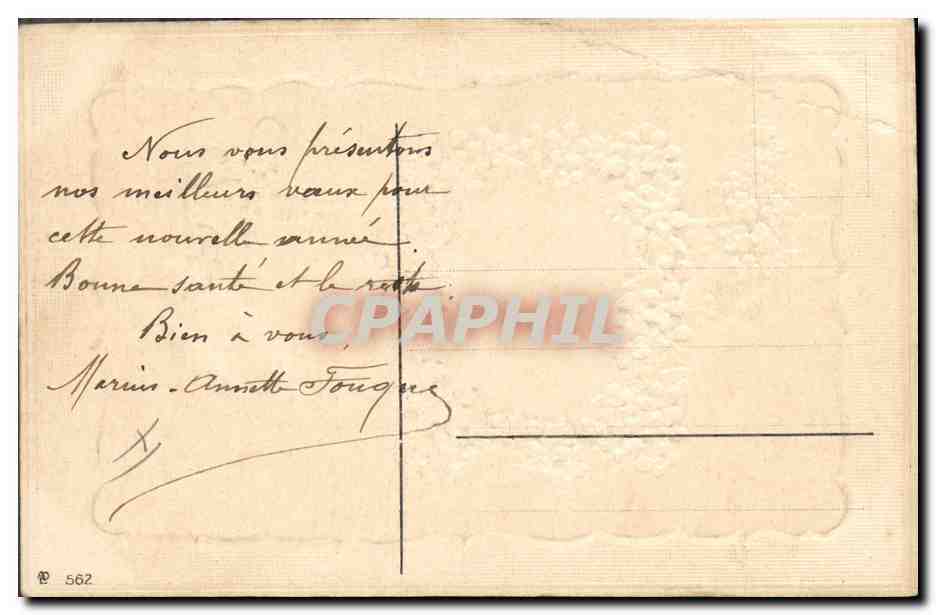 Nous vous présentons
nos meilleurs vœux pour
cette nouvelle année.
Bonne santé et le reste.
Bien à vous,
Marius-Annette Fouque
CPAPHIL
562